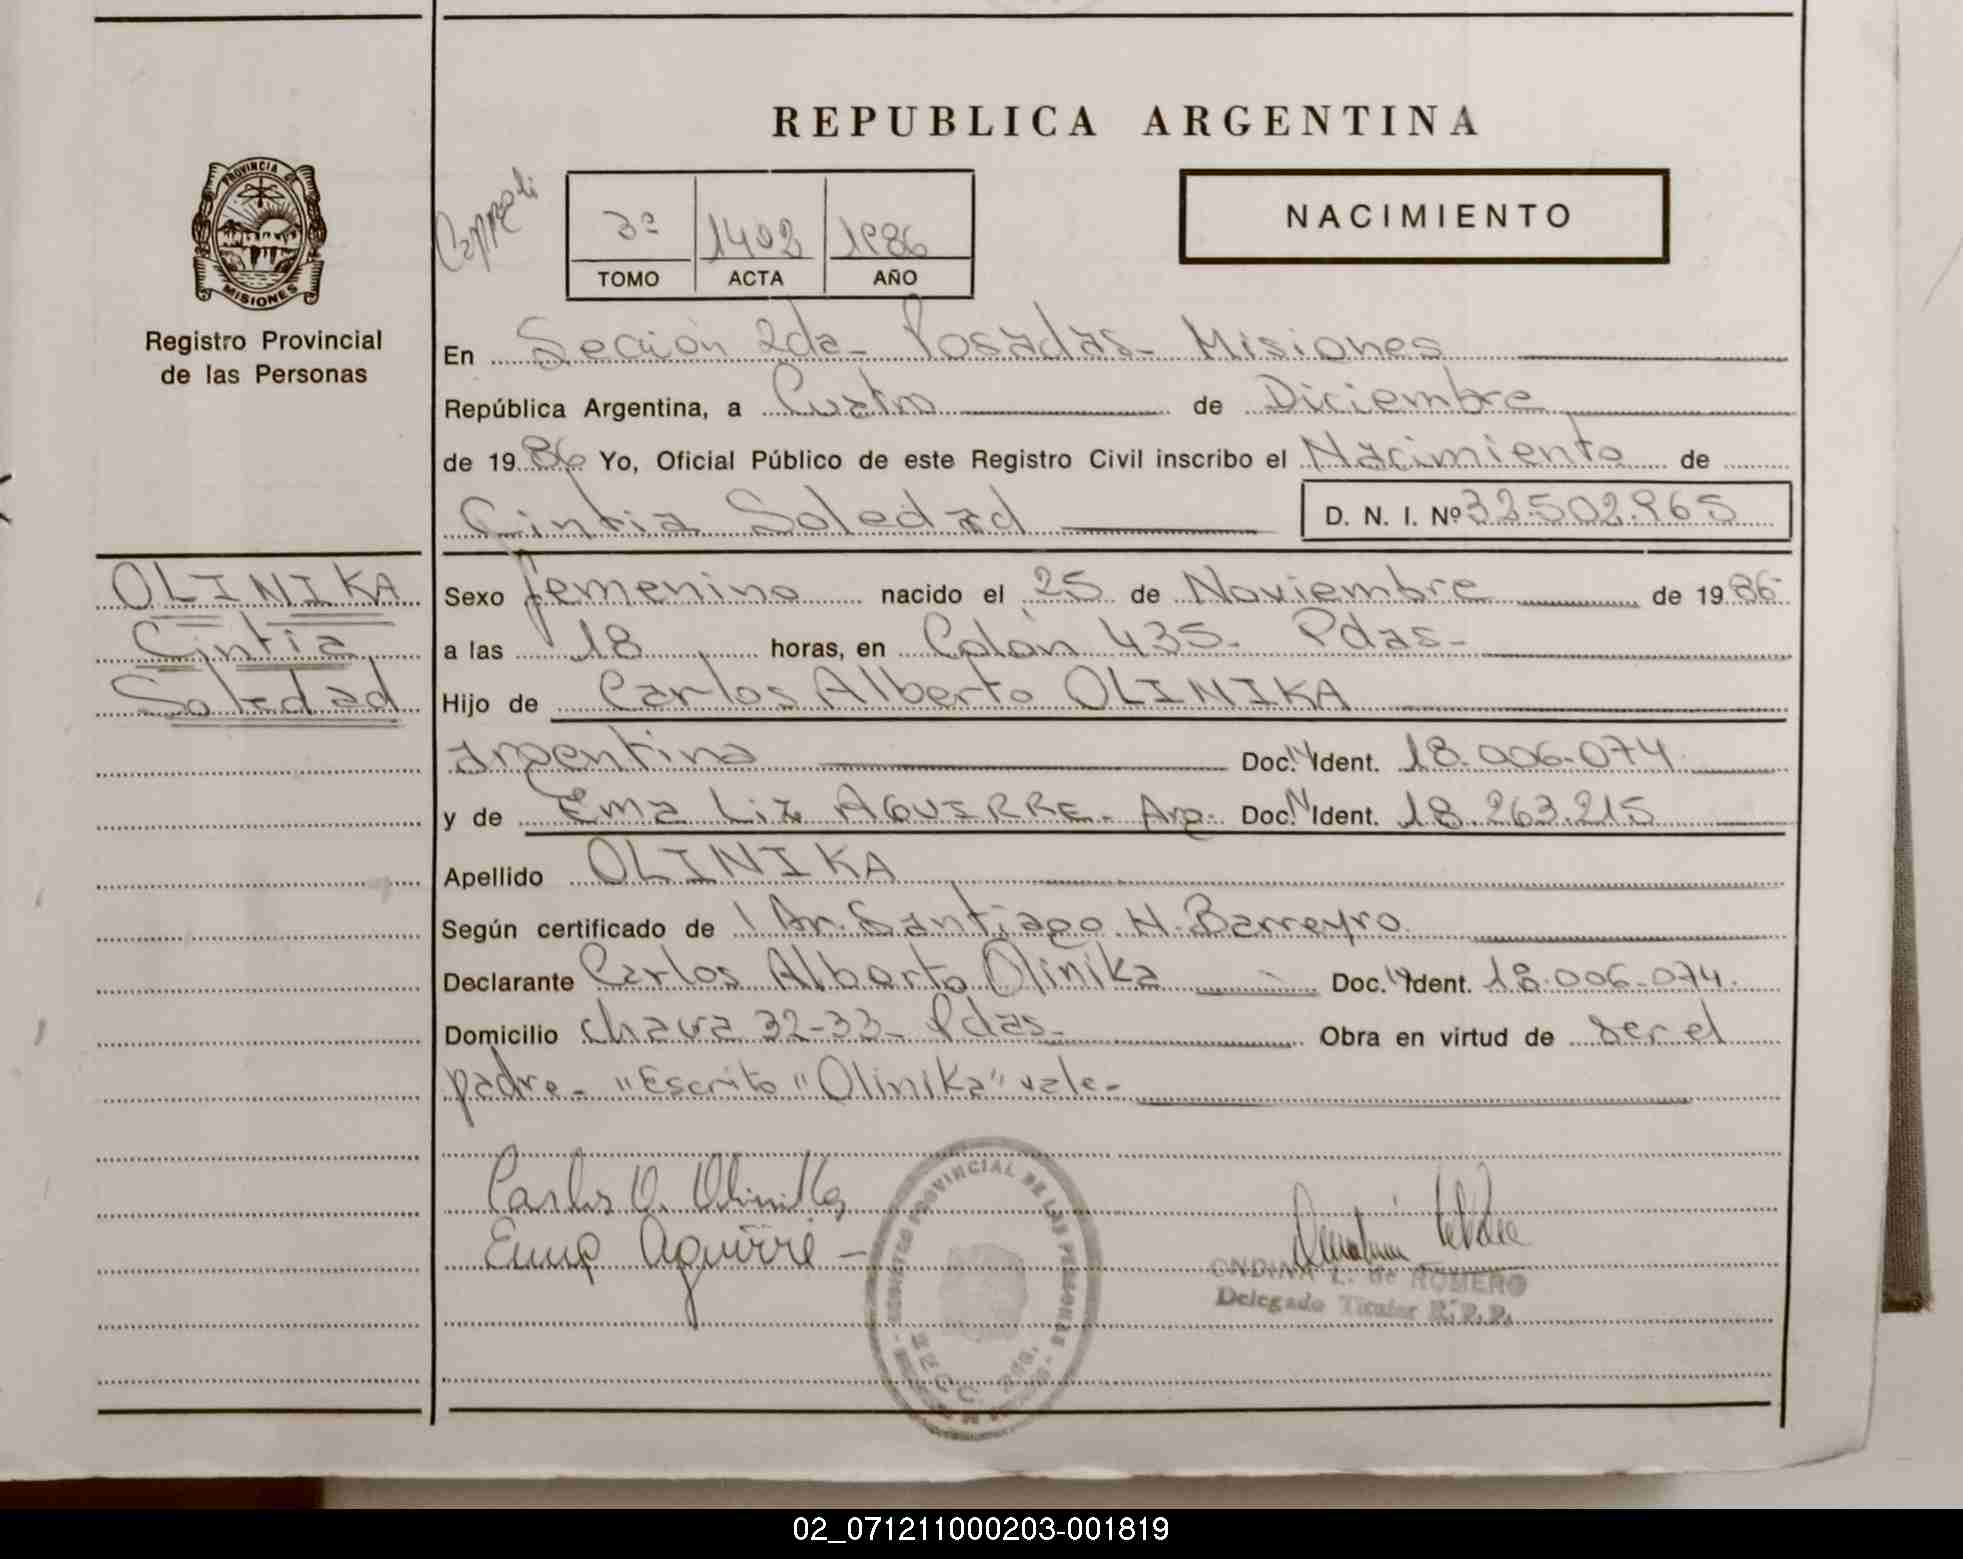 REPUBLICA ARGENTINA
PROVINCIA DE
MISIONES
Registro Provincial
de las Personas
3ª 1402 1986
TOMO ACTA AÑO
NACIMIENTO
En Sección 2da - Posadas - Misiones
República Argentina, a Cuatro de Diciembre
de 1986 Yo, Oficial Público de este Registro Civil inscribo el Nacimiento de
Cintia Soledad D. N. I. Nº 32.502.965
OLINIKA
Cintia
Soledad
Sexo femenino nacido el 25 de Noviembre de 1986
a las 18 horas, en Colón 435 - Pdas -
Hijo de Carlos Alberto OLINIKA
argentino Doc. N Ident. 18.006.074
y de Ema Liz AGUIRRE - Arg. Doc. N Ident. 18.263.215
Apellido OLINIKA
Según certificado de Dr. Santiago H. Barreyro
Declarante Carlos Alberto Olinika Doc. N Ident. 18.006.074
Domicilio chava 32-33 - Pdas - Obra en virtud de ser el
padre - "Escrito "Olinika" vale -
Carlos A. Olinika
Ema Aguirre -
REGISTRO PROVINCIAL DE LAS PERSONAS
SECC. 2da.
ONDINA L. de ROMERO
Delegado Titular R.P.P.
02_071211000203-001819